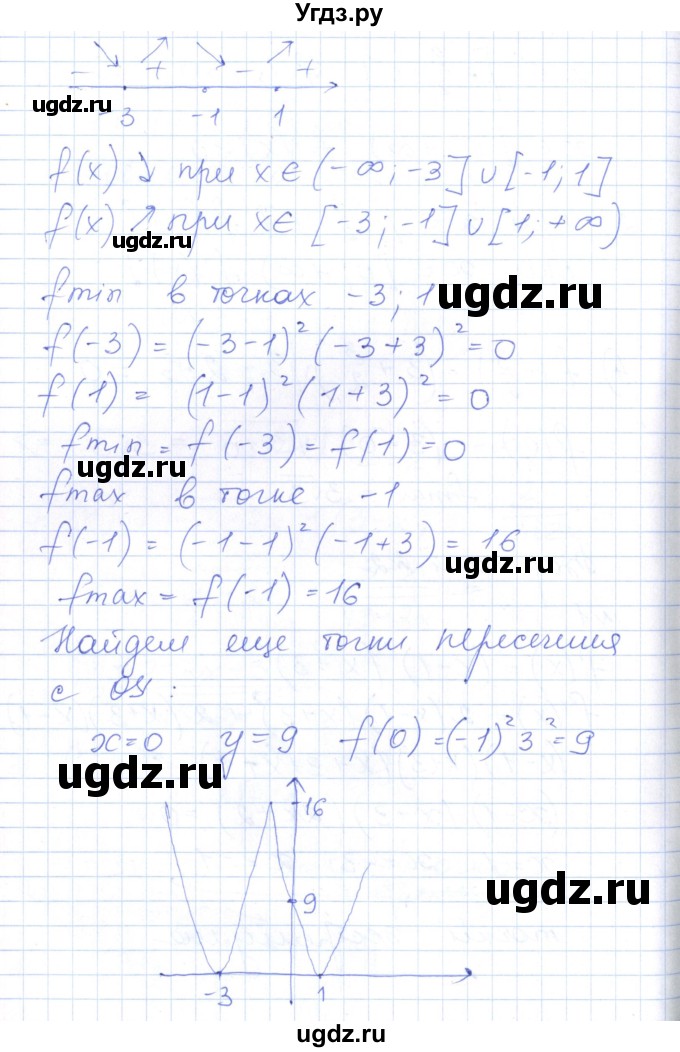 Угдз.ру
− + − +
-3 -1 1
ugdz.ru
f(x) ↘ при x ∈ (-∞; -3] ∪ [-1; 1]
f(x) ↗ при x ∈ [-3; -1] ∪ [1; +∞)
ugdz.ru
fmin в точках -3; 1
ugdz.ru
f(-3) = (-3-1)² (-3+3)² = 0
f(1) = (1-1)² (1+3)² = 0
fmin = f(-3) = f(1) = 0
ugdz.ru
fmax в точке -1
f(-1) = (-1-1)² (-1+3) = 16
ugdz.ru
fmax = f(-1) = 16
Найдем еще точки пересечения
с OY:
x=0 y=9 f(0) = (-1)² 3² = 9
ugdz.ru
16
ugdz.ru
9
-3 1
ugdz.ru